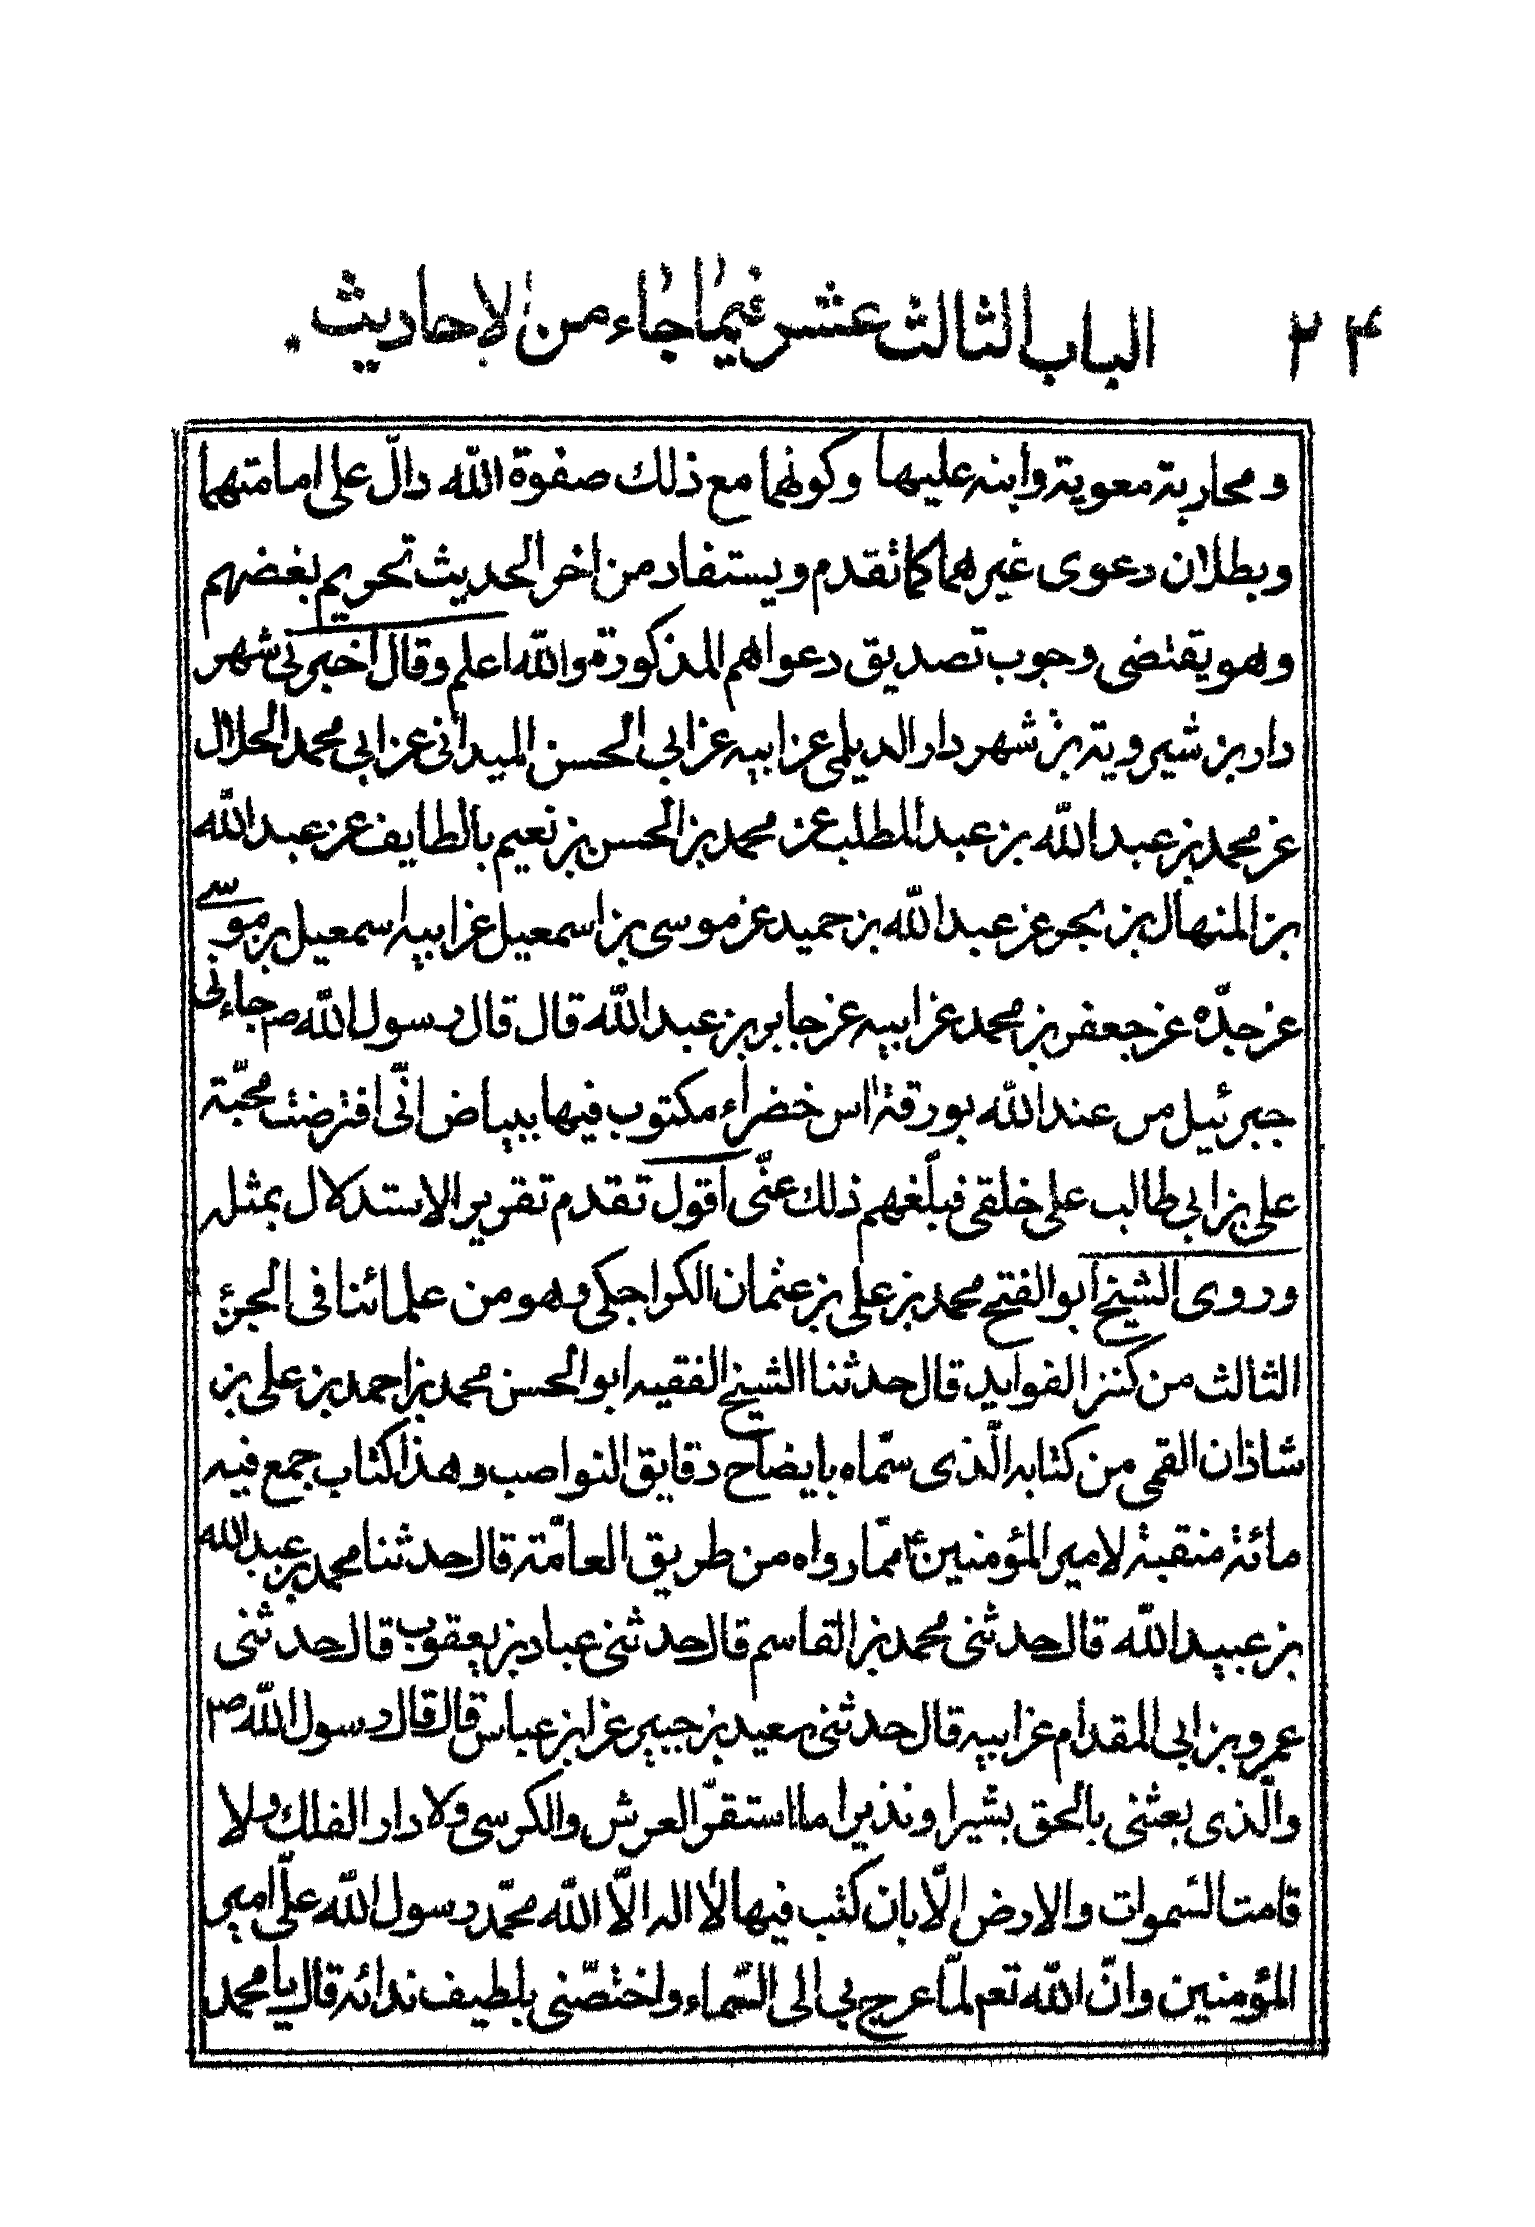 ۲۴ الباب الثالث عشر فيما جاء من الاحاديث .
و محاربة معوية وابنه عليهما وكونهما مع ذلك صفوة الله دالّ على امامتهما
وبطلان دعوى غيرهما كما تقدم ويستفاد من اخر الحديث تحريم بغضهم
وهو يقتضى وجوب تصديق دعواهم المذكورة والله اعلم وقال اخبرنى شهر
دار بن شيروية بن شهردار الديلمى عن ابيه عن ابى الحسن الميدانى عن ابى محمد الحلال
عن محمد بن عبد الله بن عبد المطلب عن محمد بن الحسن بن نعيم بالطايف عن عبد الله
بن المنهال بن بحر عن عبد الله بن حميد عن موسى بن اسمعيل عن ابيه اسمعيل بن موسى
عن جدّه عن جعفر بن محمد عن ابيه عن جابر بن عبد الله قال قال رسول الله ص جاءنى
جبرئيل من عند الله بورقة اس خضراء مكتوب فيها ببياض انّى افترضت محبّة
على بن ابى طالب على خلقى فبلّغهم ذلك عنّى اقول تقدم تقرير الاستدلال بمثله
وروى الشيخ ابو الفتح محمد بن على بن عثمان الكراجكى وهو من علمائنا فى الجزء
الثالث من كنز الفوايد قال حدثنا الشيخ الفقيه ابو الحسن محمد بن احمد بن على بن
شاذان القمى من كتابه الّذى سمّاه بايضاح دقايق النواصب وهذا كتاب جمع فيه
مائة منقبة لامير المؤمنين ع ممّا رواه من طريق العامّة قال حدثنا محمد بن عبد الله
بن عبيد الله قال حدثنى محمد بن القاسم قال حدثنى عباد بن يعقوب قال حدثنى
عمرو بن ابى المقدام عن ابيه قال حدثنى سعيد بن جبير عن ابن عباس قال قال رسول الله ص
والّذى بعثنى بالحق بشيرا ونذيرا ما استقرّ العرش والكرسى ولا دار الفلك ولا
قامت السّموات والارض الّا بان كتب فيها لا اله الّا الله محمّد رسول الله علىّ امير
المؤمنين وانّ الله تعم لمّا عرج بى الى السّماء واختصّنى بلطيف ندائه قال يا محمد